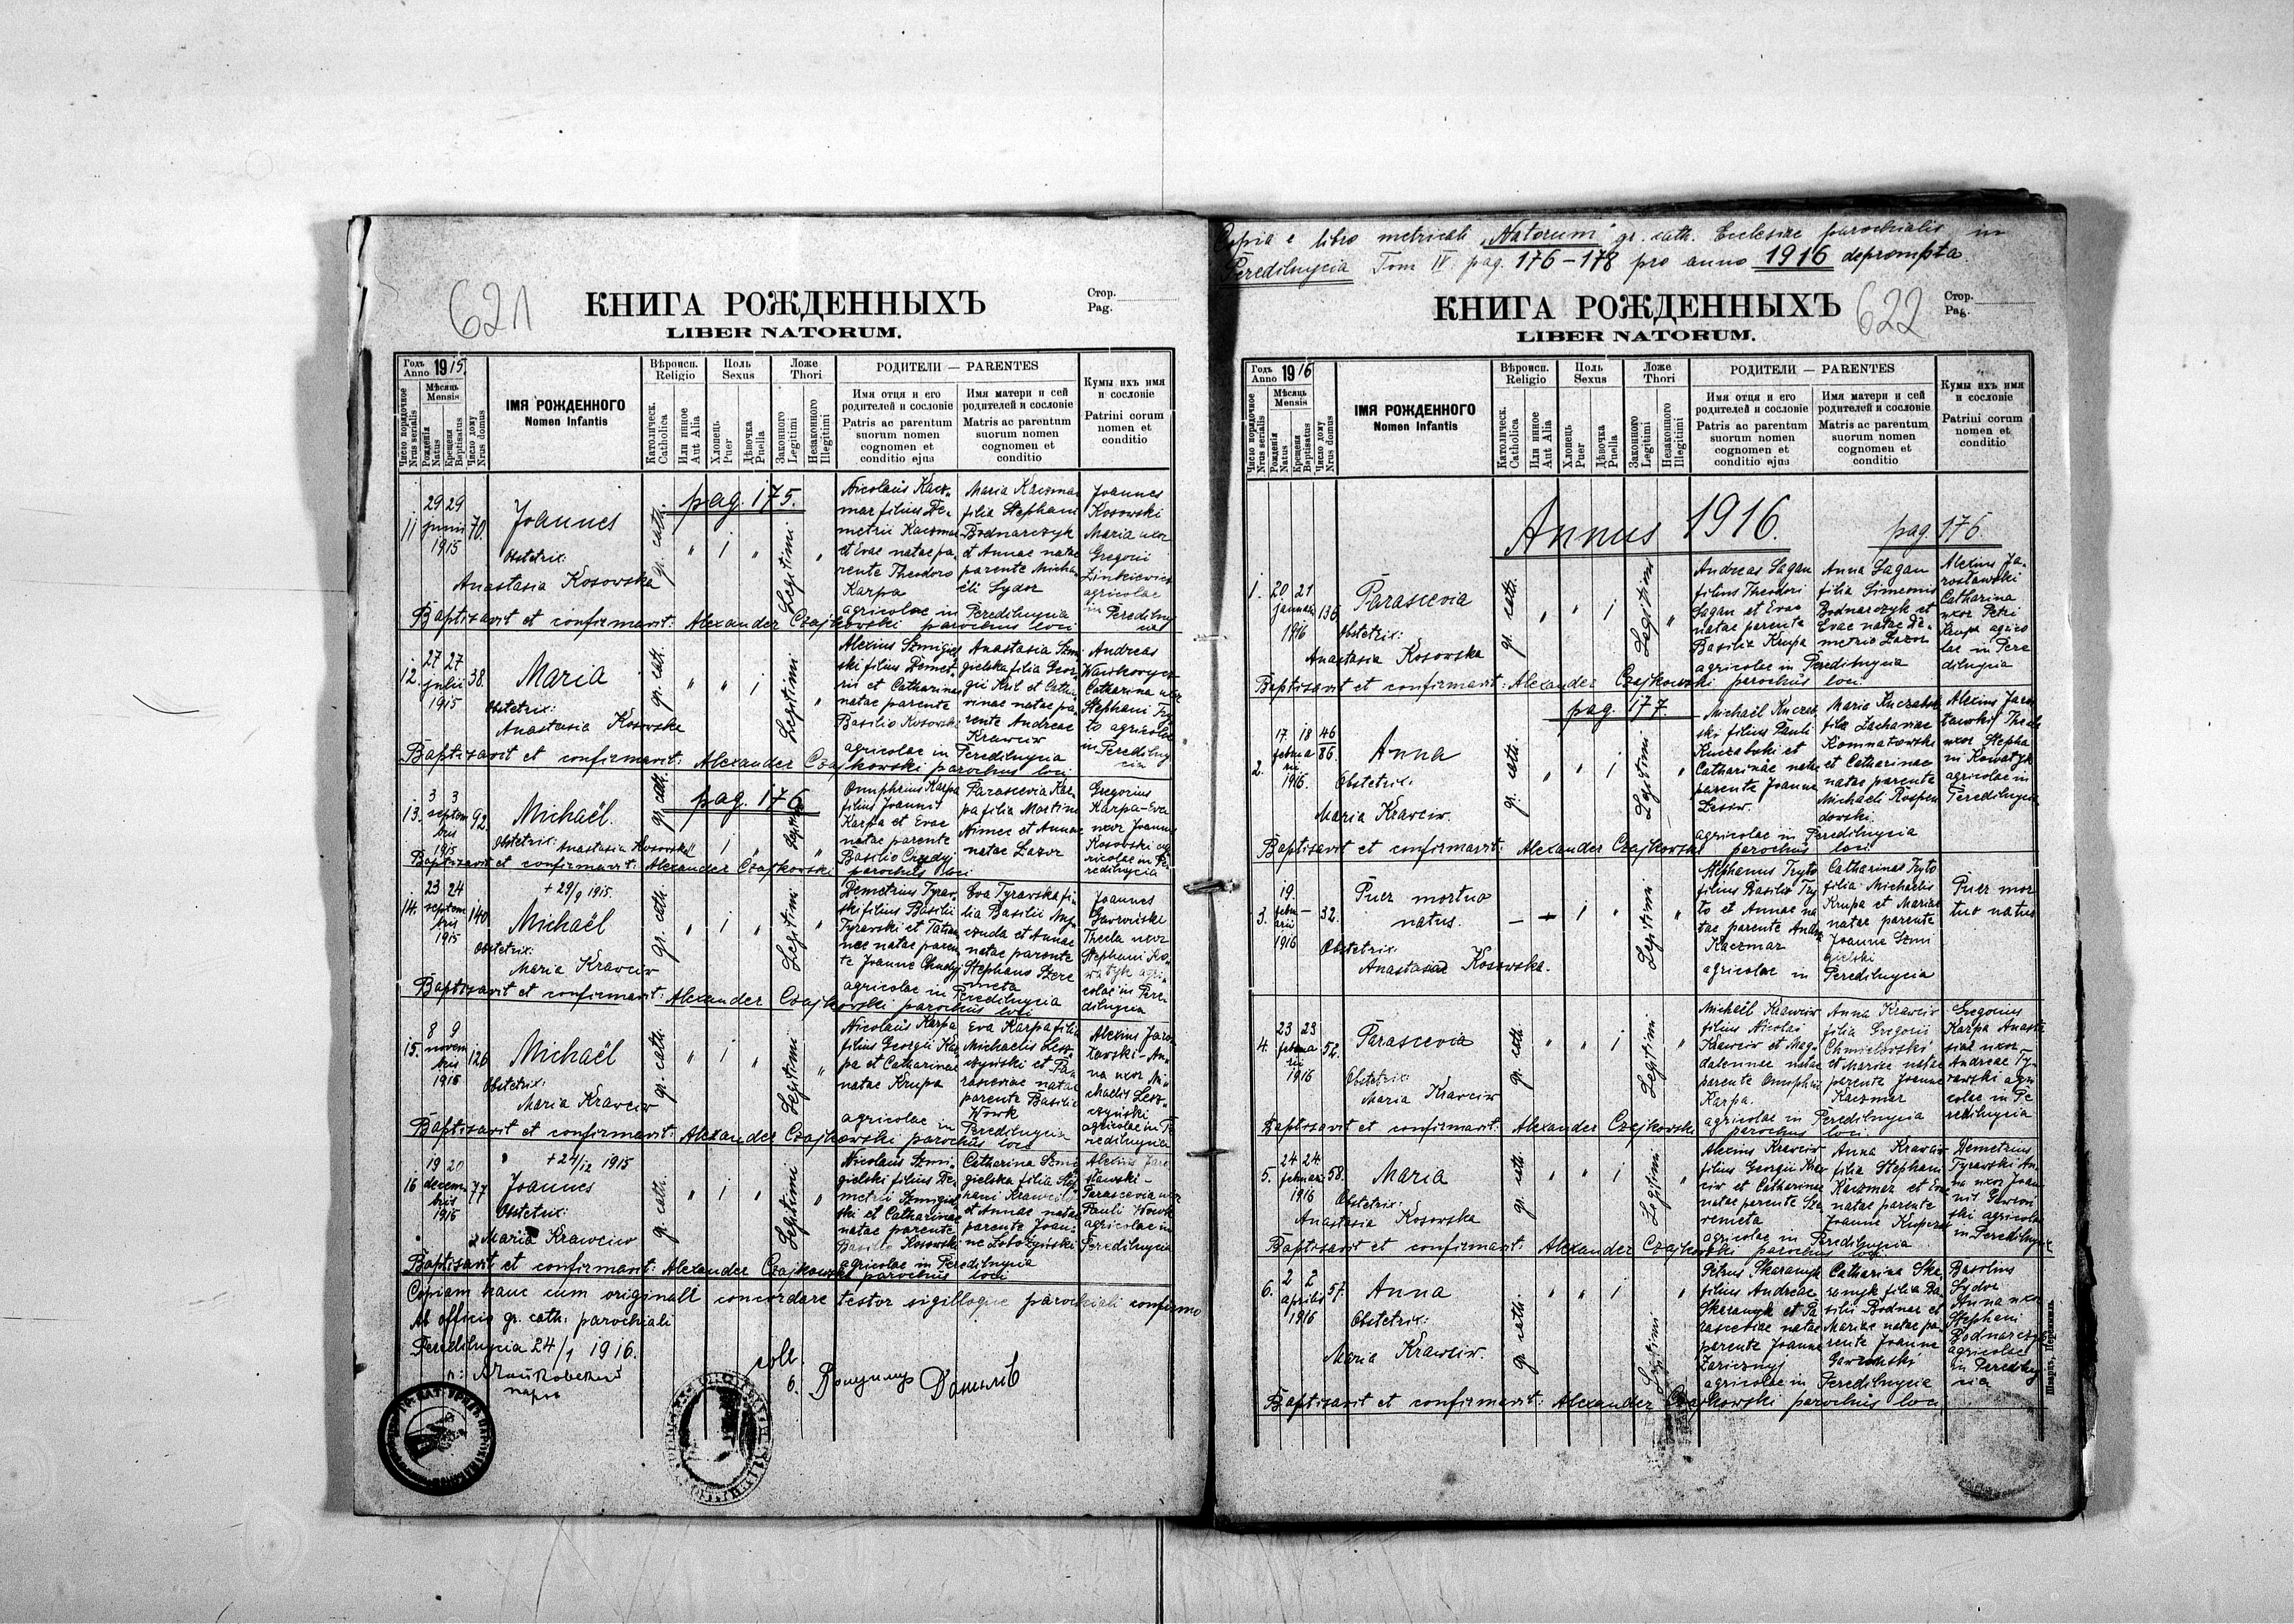 621
КНИГА РОЖДЕННЫХЪ
LIBER NATORUM.
Стор.
Pag.
Годъ
Anno 1915.
Мѣсяць
Mensis
Число порядочное
Nrus serialis
Рожденія
Natus
Крещеня
Baptisatus
Число дому
Nrus domus
ІМЯ РОЖДЕННОГО
Nomen Infantis
Вѣроисп.
Religio
Католическ.
Catholica
Или инное
Aut Alia
Полъ
Sexus
Хлопець
Puer
Дѣвочка
Puella
Ложе
Thori
Законного
Legitimi
Незаконного
Illegitimi
РОДИТЕЛИ — PARENTES
Имя отця и его
родителей и сословіе
Patris ac parentum
suorum nomen
cognomen et
conditio ejus
Имя матери и сей
родителей и сословіе
Matris ac parentum
suorum nomen
cognomen et
conditio
Кумы ихъ имя
и сословіе
Patrini corum
nomen et
conditio
pag. 175.
11
29 29
junii
1915
70.
Joannes
Obstetrix:
Anastasia Kosowska
gr. cath.
" 1 "
Legitimi
"
Nicolaus Kacz-
mar filius De-
metrii Kaczmar
et Evae natae pa-
rente Theodoro
Karpa
agricolae in
Maria Kaczmar
filia Stephani
Bodnarczyk
et Annae natae
parente Micha-
ëli Sydor
Peredilnycia
Joannes
Kosowski
Maria uxor
Gregorii
Zinkiewicz
agricolae
in Peredilny
cia
Baptisavit et confirmavit: Alexander Czajkowski parochus loci
12.
27 27
julii
1915
38.
Maria
Obstetrix:
Anastasia Kosowska
gr. cath.
" " 1
Legitimi
"
Alexius Szmigiel
ski filius Demet-
rii et Catharinae
natae parente
Basilio Kosowski
agricolae in
Anastasia Szmi
gielska filia Geor-
gii Kril et Catha-
rinae natae pa-
rente Andreae
Krawciw
Peredilnycia
Andreas
Waskowycz
Catharina uxor
Stephani Try
to agricolae
in Peredilny
cia
Baptisavit et confirmavit: Alexander Czajkowski parochus loci
pag. 176
13.
3 3
septem
bris
1915
92.
Michaël.
Obstetrix: Anastasia Kosowska
gr. cath.
" 1 "
Legitimi
"
Onuphrius Karpa
filius Joannis
Karpa et Evae
natae parente
Basilio Czudyj
Parascevia Kar-
pa filia Martini
Nimec et Annae
natae Lazor
Gregorius
Karpa – Eva
uxor Joannis
Kosowski ag
ricolae in Pe-
redilnycia
Baptisavit et confirmavit: Alexander Czajkowski parochus loci
14.
23 24
septem
bris
1915
140
+ 29/9 1915.
Michaël
Obstetrix:
Maria Krawciw
gr. cath.
" 1 "
Legitimi
"
Demetrius Tyraw-
ski filius Basilii
Tyrawski et Tatian-
nae natae paren-
te Joanne Chudyj
agricolae in
Eva Tyrawska fi-
lia Basilii
et Annae
natae parente
Stephano Szere
meta
Peredilnycia
Joannes
Gawroński
Thecla uxor
Stephani Ko-
watyk agri-
colae in Pere-
dilnycia
Baptisavit et confirmavit: Alexander Czajkowski parochus loci
15.
8 9
novem
bris
1915
126
Michaël
Obstetrix:
Maria Krawciw
gr. cath.
" 1 "
Legitimi
"
Nicolaus Karpa
filius Georgii Kar
pa et Catharinae
natae Krupa
agricolae in
Eva Karpa filia
Michaelis Lesz-
czyński et Pa-
rasceviae natae
parente Basilio
Wowk
Peredilnycia
Alexius Jaro
sławski – An-
na uxor Mi-
chaelis Lesz-
czyński
agricolae in Pe
redilnycia
Baptisavit et confirmavit: Alexander Czajkowski parochus loci
16
19 20
decem
bris
1915
77
+ 24/12 1915
Joannes
Obstetrix:
Maria Krawciw
gr. cath.
" 1 "
Legitimi
"
Nicolaus Szmi-
gielski filius De-
metrii Szmigiel
ski et Catharinae
natae parente
Basilio Kosowski
agricolae in Peredilnycia
Catharina Szmi
gielska filia Step
hani Krawciw
et Annae natae
parente Joan-
ne Łobożyński
Alexius Jaro
sławski –
Parascevia uxor
Pauli Wowk
agricolae in
Peredilnycia
Baptisavit et confirmavit: Alexander Czajkowski parochus loci
Copiam hanc cum originali concordare testor sigilloque parochiali confirmo
Ab officio gr. cath. parochiali
Peredilnycia 24/1 1916.
coll.
622
Copia e libro metricali „Natorum" gr. cath. Ecclesiae parochialis in
Peredilnycia Tom IV. pag. 176–178 pro anno 1916 deprompta.
КНИГА РОЖДЕННЫХЪ
LIBER NATORUM.
Стор.
Pag.
Годъ
Anno 1916
Мѣсяць
Mensis
Число порядочное
Nrus serialis
Рожденія
Natus
Крещеня
Baptisatus
Число дому
Nrus domus
ІМЯ РОЖДЕННОГО
Nomen Infantis
Вѣроисп.
Religio
Католическ.
Catholica
Или инное
Aut Alia
Полъ
Sexus
Хлопець
Puer
Дѣвочка
Puella
Ложе
Thori
Законного
Legitimi
Незаконного
Illegitimi
РОДИТЕЛИ — PARENTES
Имя отця и его
родителей и сословіе
Patris ac parentum
suorum nomen
cognomen et
conditio ejus
Имя матери и сей
родителей и сословіе
Matris ac parentum
suorum nomen
cognomen et
conditio
Кумы ихъ имя
и сословіе
Patrini corum
nomen et
conditio
Annus 1916.
pag. 176.
1.
20 21
januarii
1916
136
Parascevia
Obstetrix:
Anastasia Kosowska
gr. cath.
" " 1
Legitimi
"
Andreas Sagan
filius Theodori
Sagan et Evae
natae parente
Basilio Krupa
agricolae in Peredilnycia
Anna Sagan
filia Simeonis
Bodnarczyk et
Evae natae De-
metrio Lazor
Alexius Ja-
rosławski
Catharina
uxor Petri
Krupa agrico
lae in Pere
dilnycia
Baptisavit et confirmavit: Alexander Czajkowski parochus loci.
pag. 177.
2.
17 18
februa
rii
1916.
46
86
Anna
Obstetrix:
Maria Krawciw.
gr. cath.
" " 1
Legitimi
"
Michaël Kuczab
ski filius Pauli
Kuczabski et
Catharinae natae
parente Joanne
Lesiw.
agricolae in Peredilnycia
Maria Kuczabska
filia Zachariae
Kommatowski
et Catharinae
natae parente
Michaeli Rospen
dowski.
Alexius Jaro
sławski Thecla
uxor Stepha
ni Kowatyk
agricolae in
Peredilnycia
Baptisavit et confirmavit: Alexander Czajkowski parochus loci
3.
19
febru
arii
1916
–
32.
Puer mortuo
natus.
Obstetrix:
Anastasiae Kosowska.
– – 1 "
Legitimi
"
Stephanus Tryto
filius Basilii Try
to et Annae na
tae parente Andrea
Kaczmar
agricolae in
Catharinae Tryto
filia Michaelis
Krupa et Mariae
natae parente
Joanne Szmi
gielski
Peredilnycia
Puer mor
tuo natus
4.
23 23
februa
rii
1916
52.
Parascevia
Obstetrix:
Maria Krawciw
gr. cath.
" " 1
Legitimi
"
Michaël Krawciw
filius Nicolai
Krawciw et Mag-
dalennae natae
parente Onuphrio
Karpa.
agricolae in Peredilnycia
Anna Krawciw
filia Gregorii
Chmielowski
et Mariae natae
parente Joanne
Kaczmar
Gregorius
Karpa Anasta
siae uxor
Andreae Ty-
rawski agri
colae in Pe
redilnycia
Baptisavit et confirmavit: Alexander Czajkowski parochus loci.
5.
24 24
februarii
1916
58.
Maria
Obstetrix:
Anastasia Kosowska
gr. cath.
" " 1
Legitimi
"
Alexius Krawciw
filius Georgii Kraw
ciw et Catharinae
natae parente Sze
remeta
agricolae in Peredilnycia
Anna Krawciw
filia Stephani
Kaczmar et Evae
natae parente
Joanne Kuperak
Demetrius
Tyrawski An-
na uxor Joan
nis Gawroń
ski agricolae
in Peredilnycia
Baptisavit et confirmavit: Alexander Czajkowski parochus loci
6.
2 2
aprilis
1916
57.
Anna
Obstetrix:
Maria Krawciw.
gr. cath.
" " 1
Legitimi
"
Petrus Skaramyk
filius Andreae
Skaramyk et Pa
rasceviae natae
parente Joanne
Zaricznyj
agricolae in Peredilnycia
Catharina Ska
ramyk filia Ba
silii Bodnar et
Mariae natae pa-
rente Joanne
Gawroński
Basilius
Sydor
Anna uxor
Stephani
Bodnarczyk
agricolae
in Peredilny
cia
Baptisavit et confirmavit: Alexander Czajkowski parochus loci